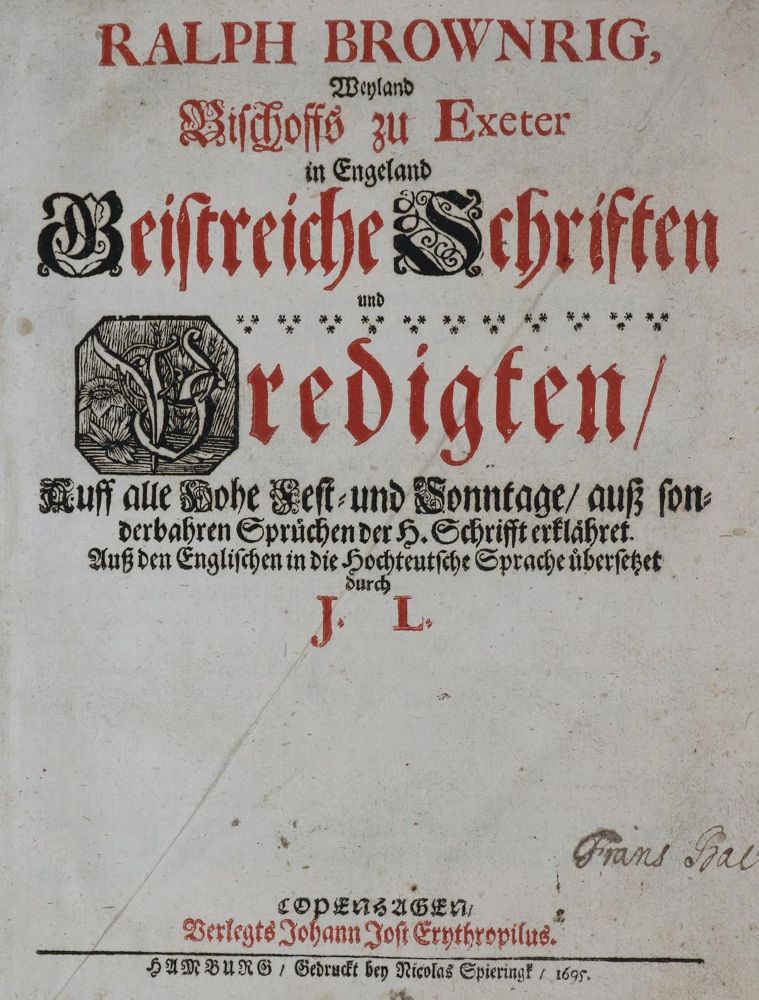 RALPH BROWNRIG,
Weyland
Bischoffs zu Exeter
in Engeland
Geistreiche Schriften
und
Predigten/
Auff alle Hohe Fest- und Sonntage/ auß son-
derbahren Sprüchen der H. Schrifft erklähret.
Auß den Englischen in die Hochteutsche Sprache übersetzet
durch
J. L.
Frans
COPENHAGEN/
Verlegts Johann Jost Erythropilus.
HAMBURG / Gedruckt bey Nicolas Spieringk / 1695.